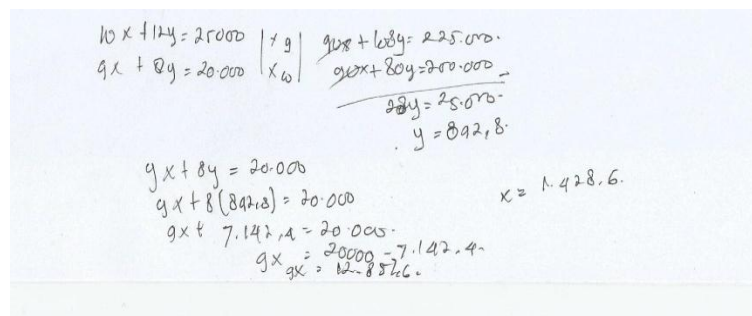 10x + 12y = 25000 | x 9 | 90x + 108y = 225.000.
9x + 8y = 20.000 | x 10 | 90x + 80y = 200.000 -
28y = 25.000-
y = 892,8.
9x + 8y = 20.000
9x + 8(892,8) = 20.000
9x + 7.142,4 = 20.000.
9x = 20000 - 7.142,4-
9x = 12.857,6.
x = 1.428,6.